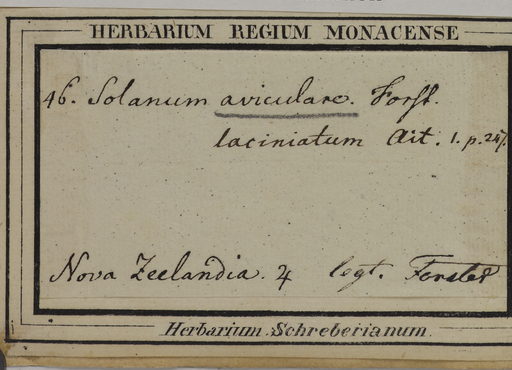 HERBARIUM REGIUM MONACENSE
46. Solanum aviculare. Forst.
laciniatum Ait. 1. p. 247.
Nova Zeelandia. ♃ legt. Forster
Herbarium Schreberianum.